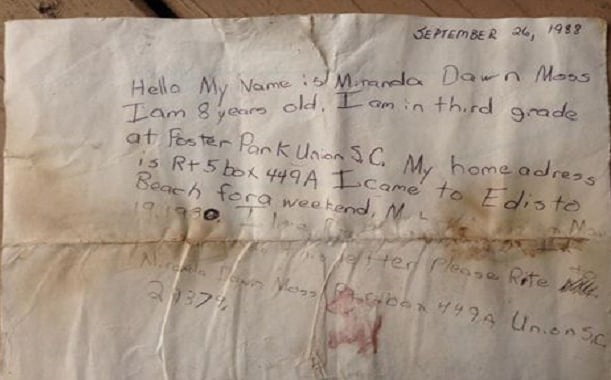 SEPTEMBER 26, 1988
Hello My Name is Miranda Dawn Moss
I am 8 years old. I am in third grade
at Foster Park Union S.C. My home adress
is Rt 5 box 449A I came to Edisto
Beach for a weekend, M
19, 1980. I
letter Please Rite to
Miranda Dawn Moss Rt 5 box 449A Union S.C.
29379.